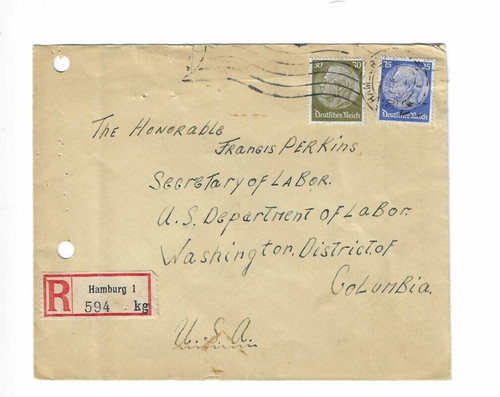 30 30
25 25
Deutsches Reich
Deutsches Reich
The Honorable
Francis Perkins.
Secretary of Labor.
U.S. Department of Labor
Washington. District of
Columbia.
R
Hamburg 1
594 kg
U.S.A.